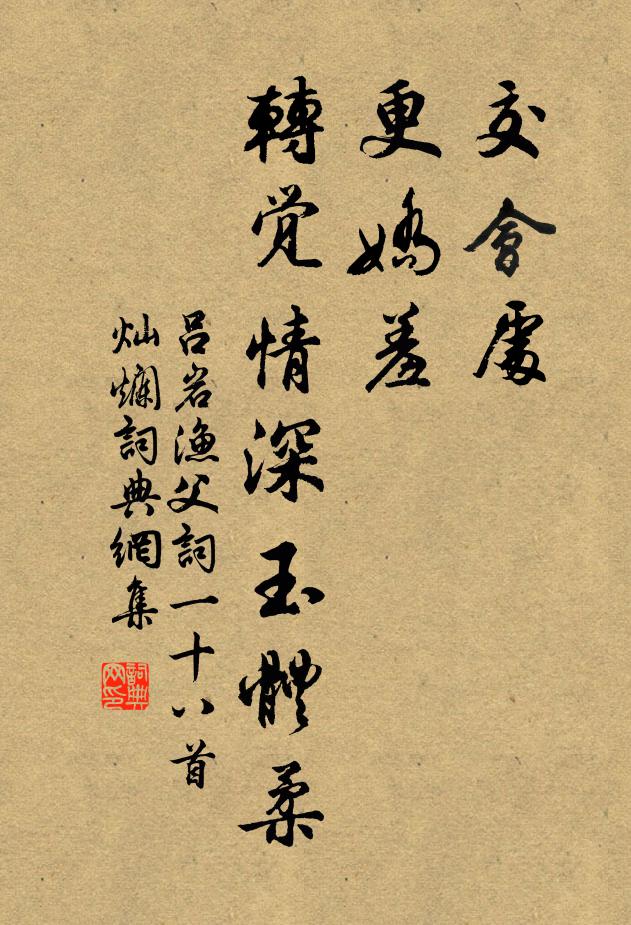 交會處
更嬌羞
轉覚情深玉體柔
呂岩漁父詞一十八首
灿爛詞典網集
詞典
网印